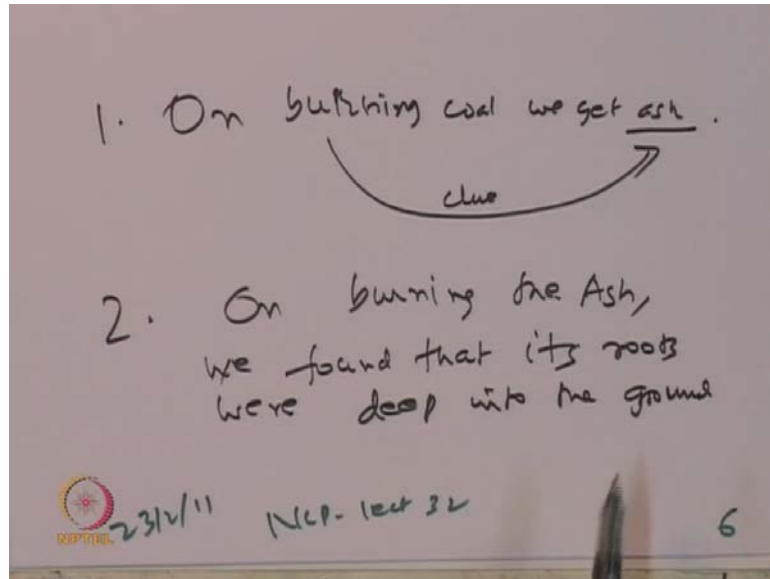 1. On burning coal we get ash.
clue
2. On burning the Ash,
we found that its roots
were deep into the ground
NPTEL 23/2/11 NLP-lect 32 6